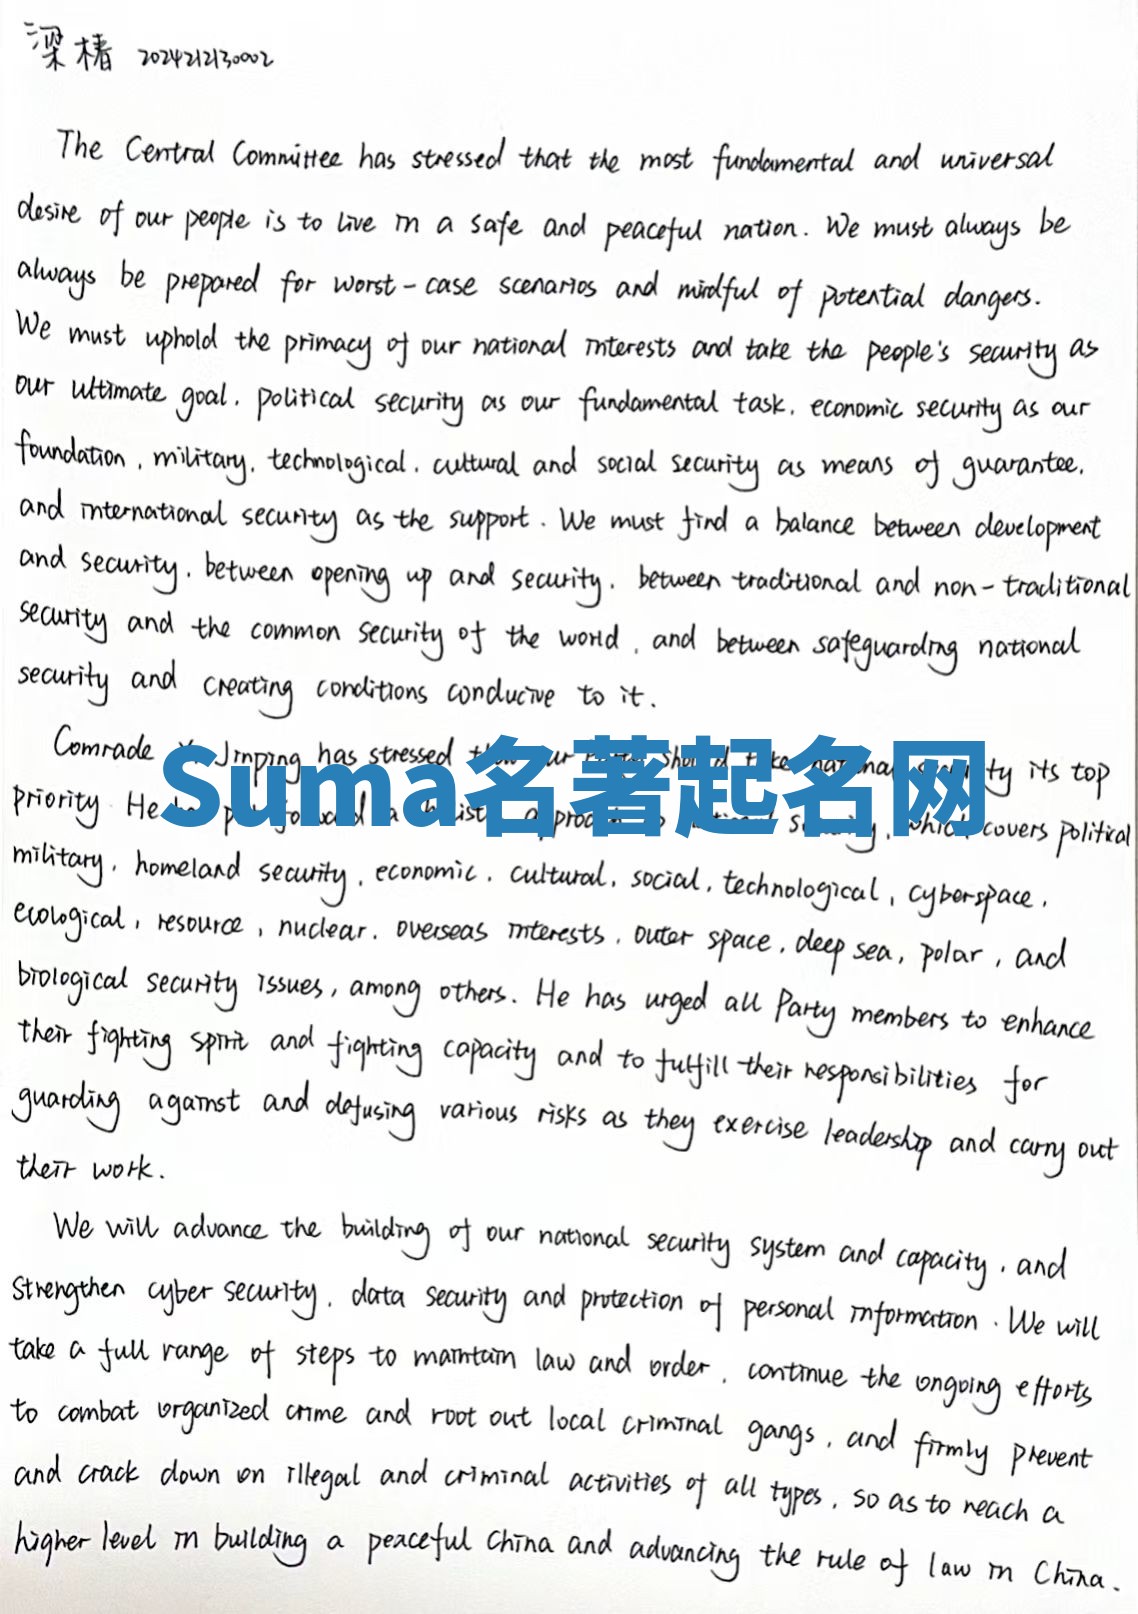 梁椿 2024212130002
The Central Committee has stressed that the most fundamental and universal
desire of our people is to live in a safe and peaceful nation. We must always be
always be prepared for worst-case scenarios and mindful of potential dangers.
We must uphold the primacy of our national interests and take the people's security as
our ultimate goal, political security as our fundamental task, economic security as our
foundation, military, technological, cultural and social security as means of guarantee,
and international security as the support. We must find a balance between development
and security, between opening up and security, between traditional and non-traditional
security and the common security of the world, and between safeguarding national
security and creating conditions conducive to it.
Comrade Jinping has stressed its top
Suma名著起名网
priority. He which covers political
military, homeland security, economic, cultural, social, technological, cyberspace,
ecological, resource, nuclear, overseas interests, outer space, deep sea, polar, and
biological security issues, among others. He has urged all Party members to enhance
their fighting spirit and fighting capacity and to fulfill their responsibilities for
guarding against and defusing various risks as they exercise leadership and carry out
their work.
We will advance the building of our national security system and capacity, and
strengthen cyber security, data security and protection of personal information. We will
take a full range of steps to maintain law and order, continue the ongoing efforts
to combat organized crime and root out local criminal gangs, and firmly prevent
and crack down on illegal and criminal activities of all types, so as to reach a
higher level in building a peaceful China and advancing the rule of law in China.